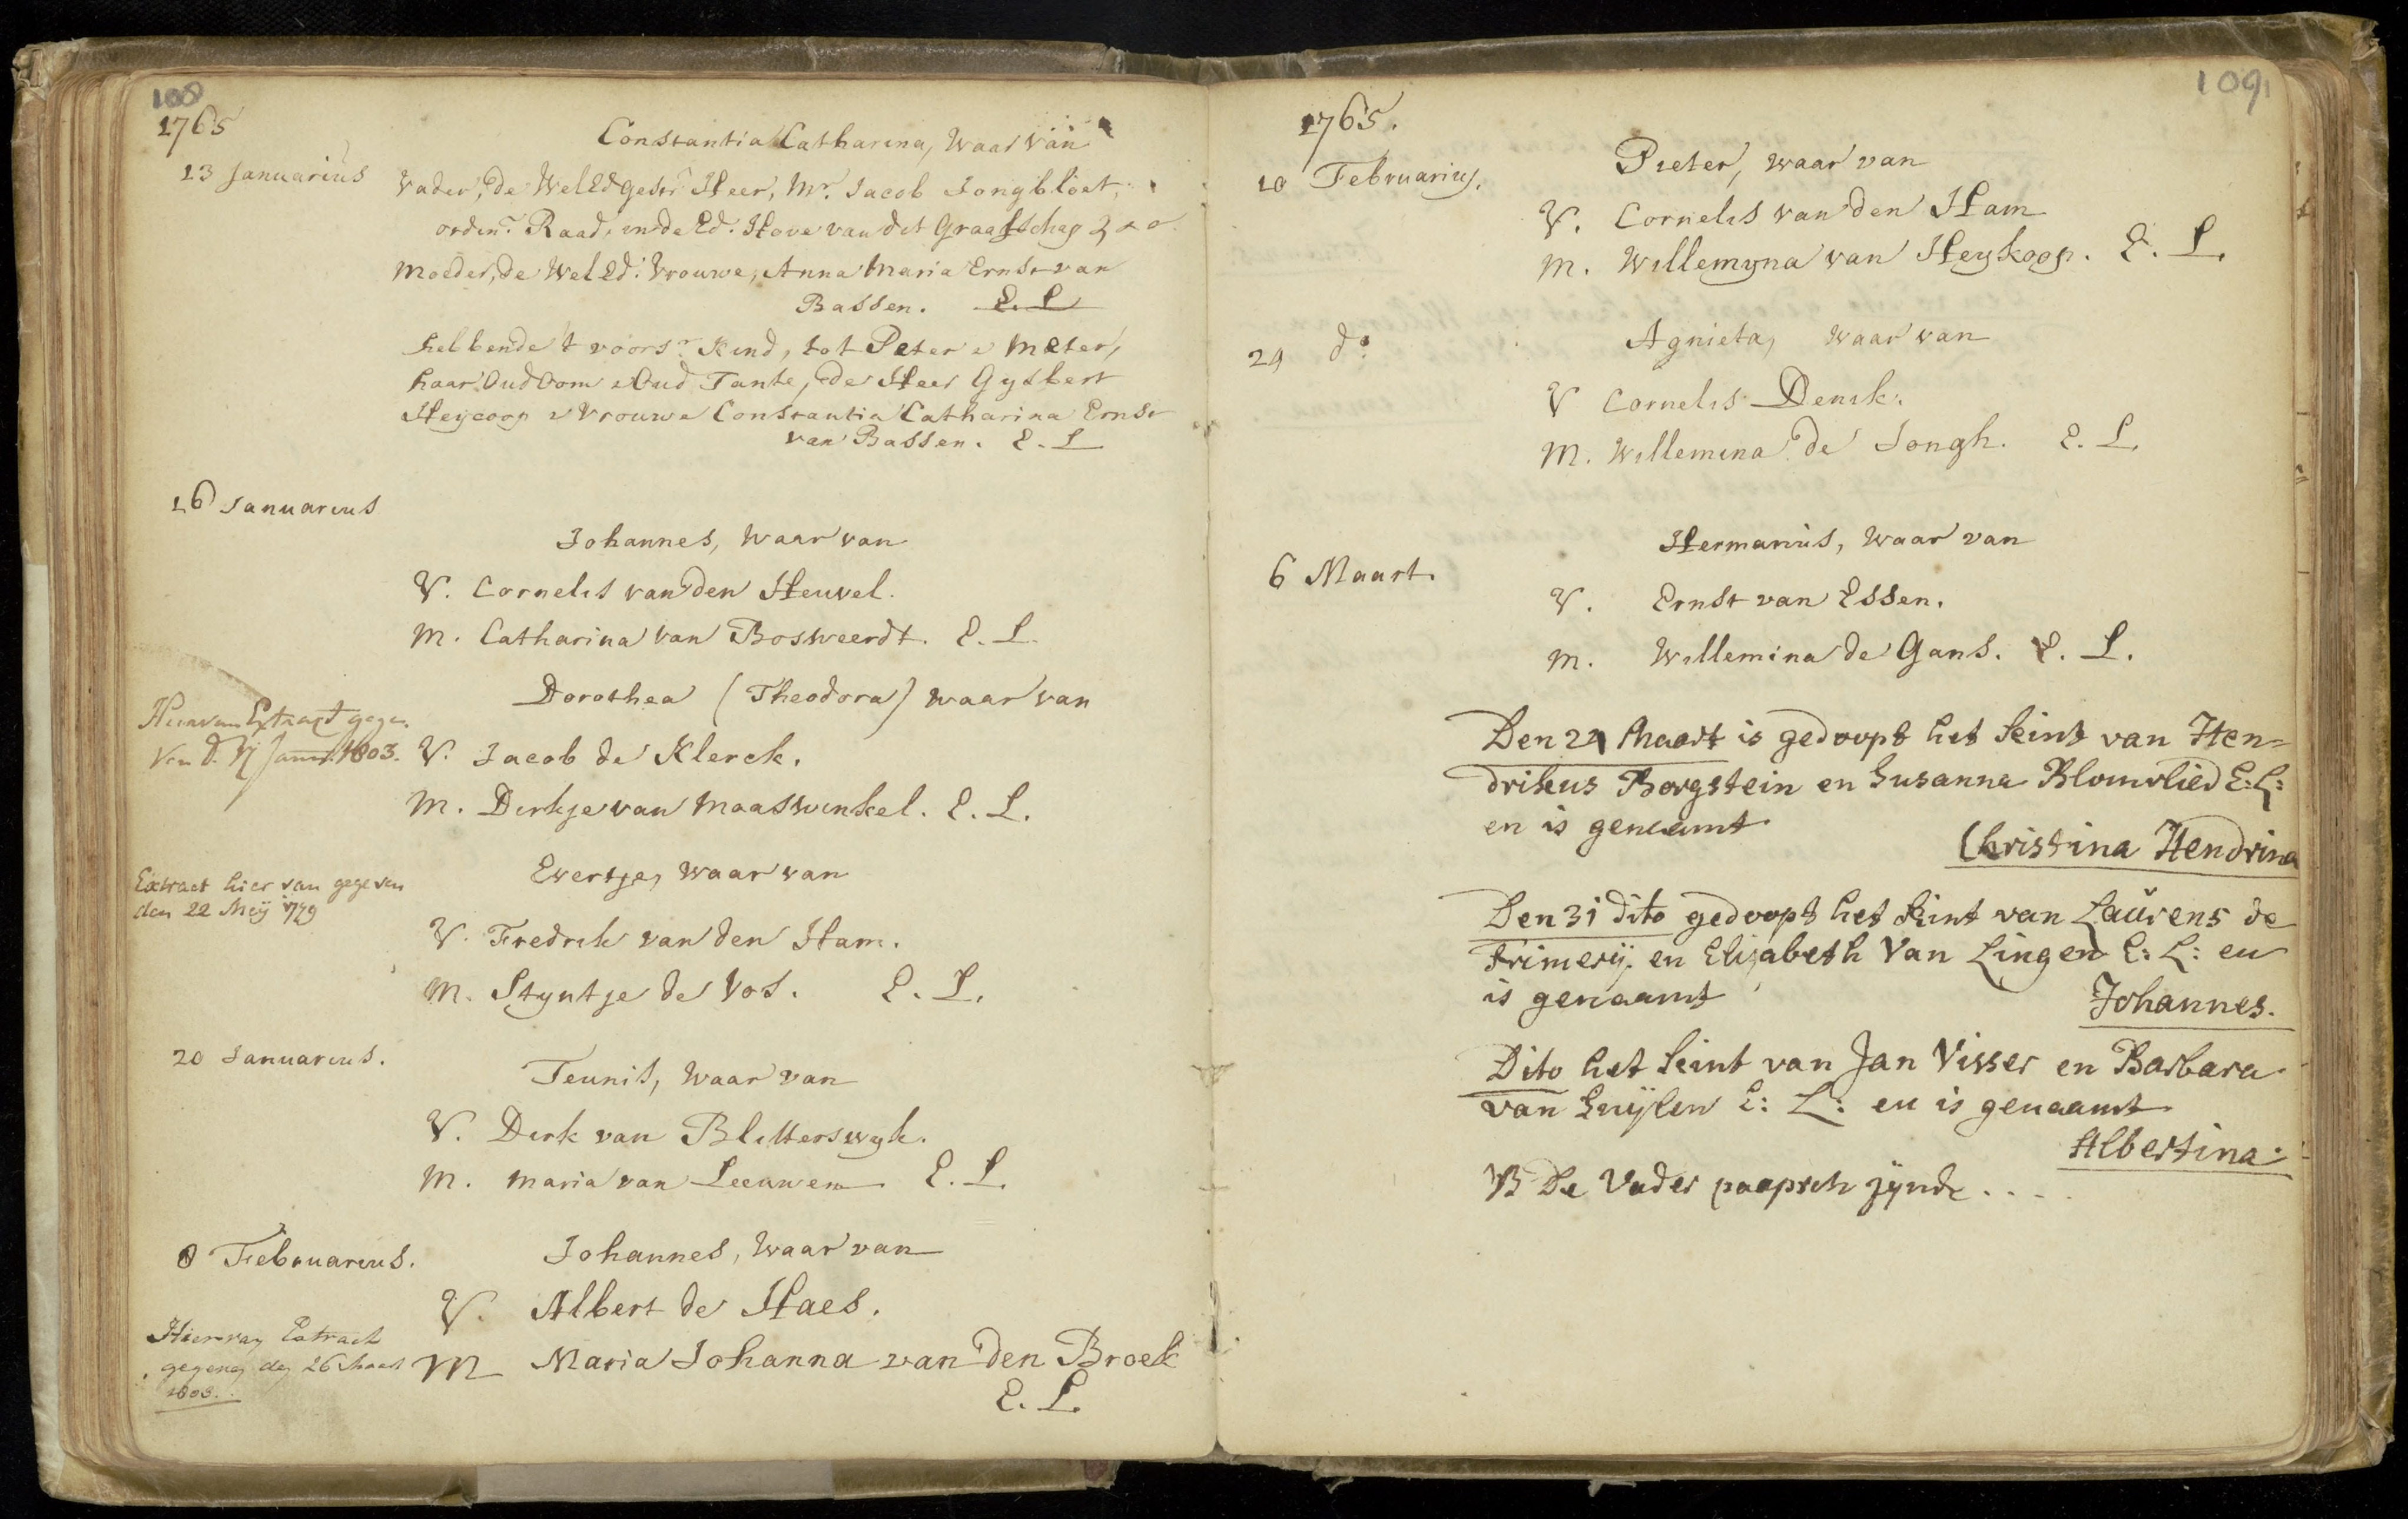 108
1765
13 Januarius
Constantia Catharina, waar van
Vader, de WelEdgestr. Heer, Mr. Jacob Jongbloet,
ordin.r Raad, in de Ed. Hove van dit Graafschap
Moeder, de WelEd: Vrouwe, Anna Maria Ernst van
Bassen. E. L
hebbende 't voors.r Kind, tot Peter & Meter,
haar Oud Oom & Oud Tante, de Heer Gysbert
Heycoop & Vrouwe Constantia Catharina Ernst
van Bassen. E. L
16 Januarius
Johannes, waar van
V. Cornelis van den Heuvel.
M. Catharina van Bosweerdt. E. L.
Dorothea (Theodora) waar van
Hiervan Extract gege.
ven d. Januarij 1803.
V. Jacob de Klerck.
M. Dirkje van Maaswinkel. E. L.
Evertje, waar van
Extract hier van gegeven
den 22 Meij 1779
V. Fredrik van den Ham.
M. Styntje de Vos. E. L.
20 Januarius.
Teunis, waar van
V. Dirk van Blitterswyk.
M. Maria van Leeuwen E. L.
8 Februarius.
Johannes, waar van
V. Albert de Haes.
Hiervan Extract
gegeven den 26 Maart
1803.
M Maria Johanna van den Broek
E. L.
109
1765.
10 Februarius.
Pieter, waar van
V. Cornelis van den Ham
M. Willemyna van Heykoop. E. L.
24 do
Agnieta, waar van
V Cornelis Denik.
M. Willemina de Jongh. E. L.
6 Maart.
Hermanus, waar van
V. Ernst van Essen.
M. Willemina de Gans. E. L.
Den 24 Maart is gedoopt het kint van Hen=
drikus Borgstein en Susanna Blomvlied E: L:
en is genaamt
Christina Hendrina
Den 31 dito gedoopt het kint van Laurens de
Frimerij en Elizabeth Van Lingen E: L: en
is genaamt
Johannes.
Dito het kint van Jan Visser en Barbara
van Suijlen E: L: en is genaamt
Albertina.
NB De Vader paapsch zijnde....